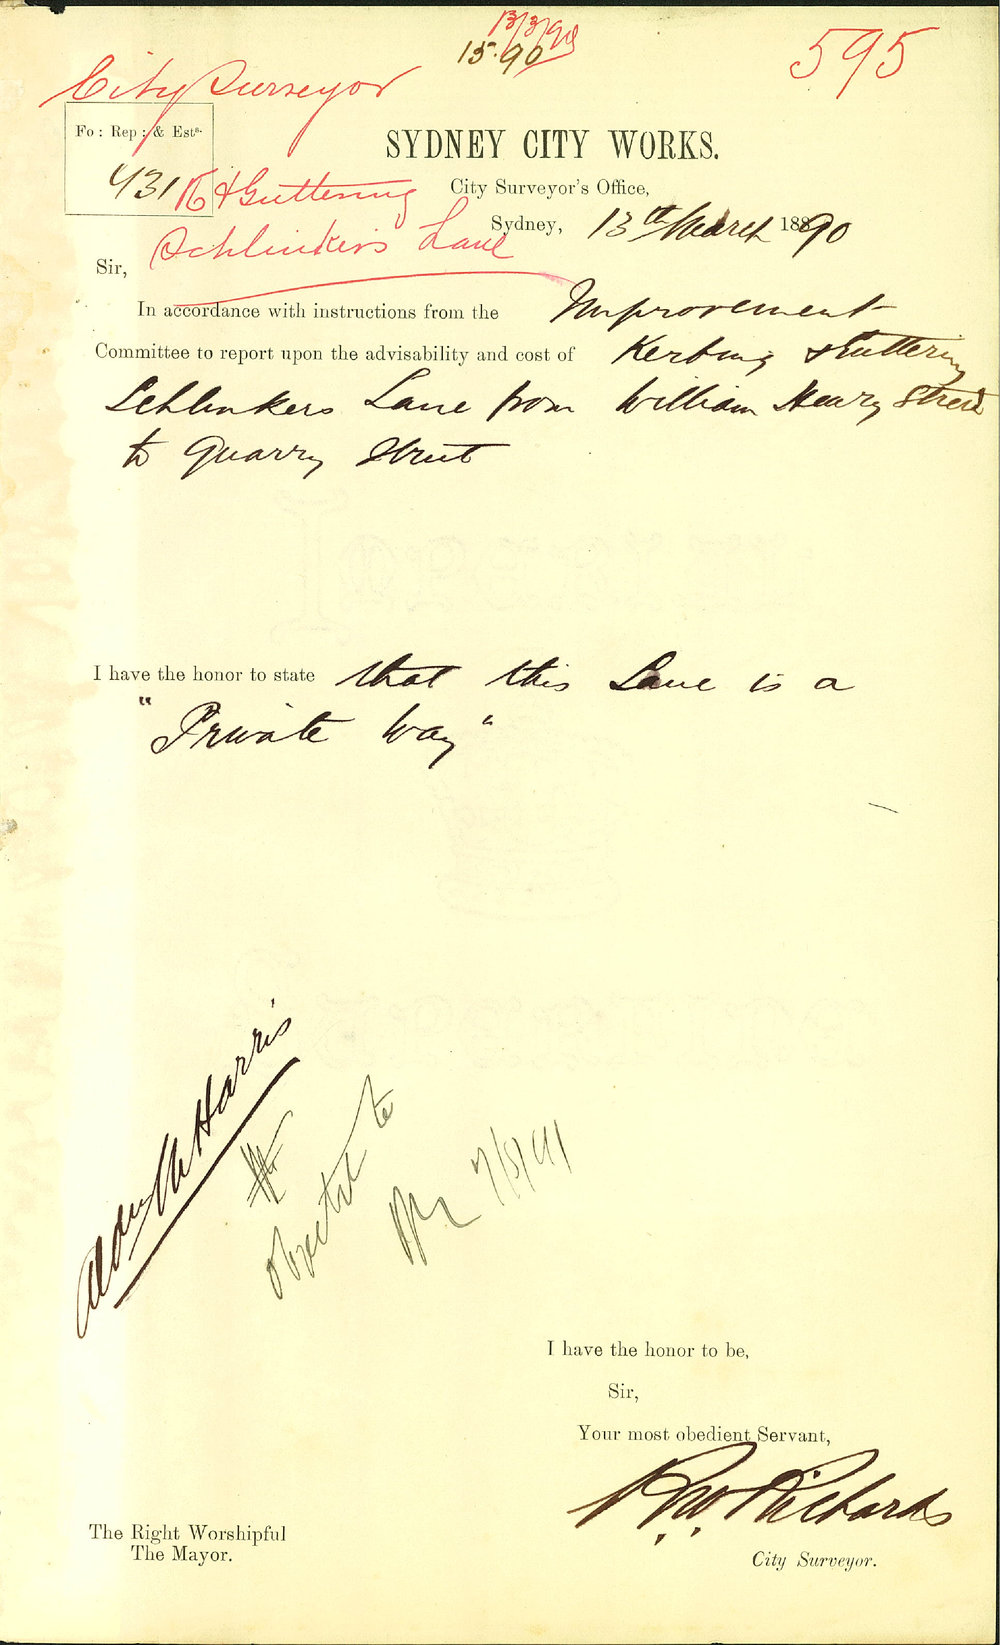 13/3/90
15.90
595
City Surveyor
Fo: Rep: & Ests.
431
K & Guttering
Schlinkers Lane
SYDNEY CITY WORKS.
City Surveyor's Office,
Sydney, 13th March 1890
Sir,
In accordance with instructions from the Improvement
Committee to report upon the advisability and cost of Kerbing & Guttering
Schlinkers Lane from William Henry Street
to Quarry Street
I have the honor to state that this Lane is a
"Private Way"
Aldn W Harris
I have the honor to be,
Sir,
Your most obedient Servant,
R. W. Richards
City Surveyor.
The Right Worshipful
The Mayor.